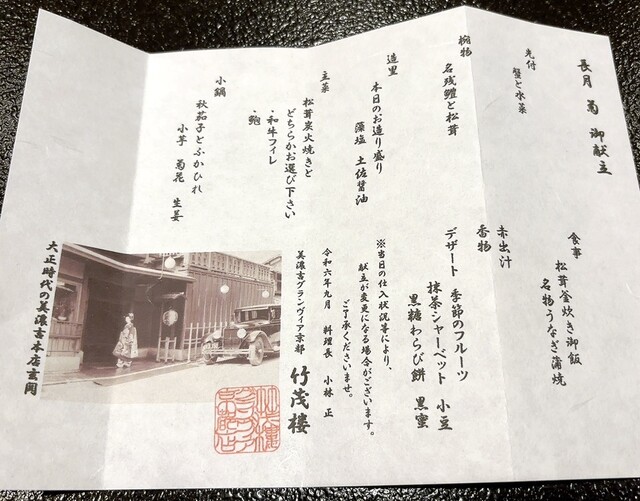 長月 菊 御献立
先付
蟹と水菜
椀物
名残鱧と松茸
造里
本日のお造り盛り
藻塩 土佐醤油
主菜
松茸炭火焼きと
どちらかお選び下さい
・和牛フィレ
・鮑
小鍋
秋茄子とふかひれ
小芋 菊花 生姜
食事
松茸釜炊き御飯
名物うなぎ蒲焼
赤出汁
香物
デザート 季節のフルーツ
抹茶シャーベット 小豆
黒糖わらび餅 黒蜜
※当日の仕入状況等により、
献立が変更になる場合がございます。
ご了承くださいませ。
令和六年九月 料理長 小林 正
美濃吉グランヴィア京都 竹茂楼
大正時代の美濃吉本店玄関